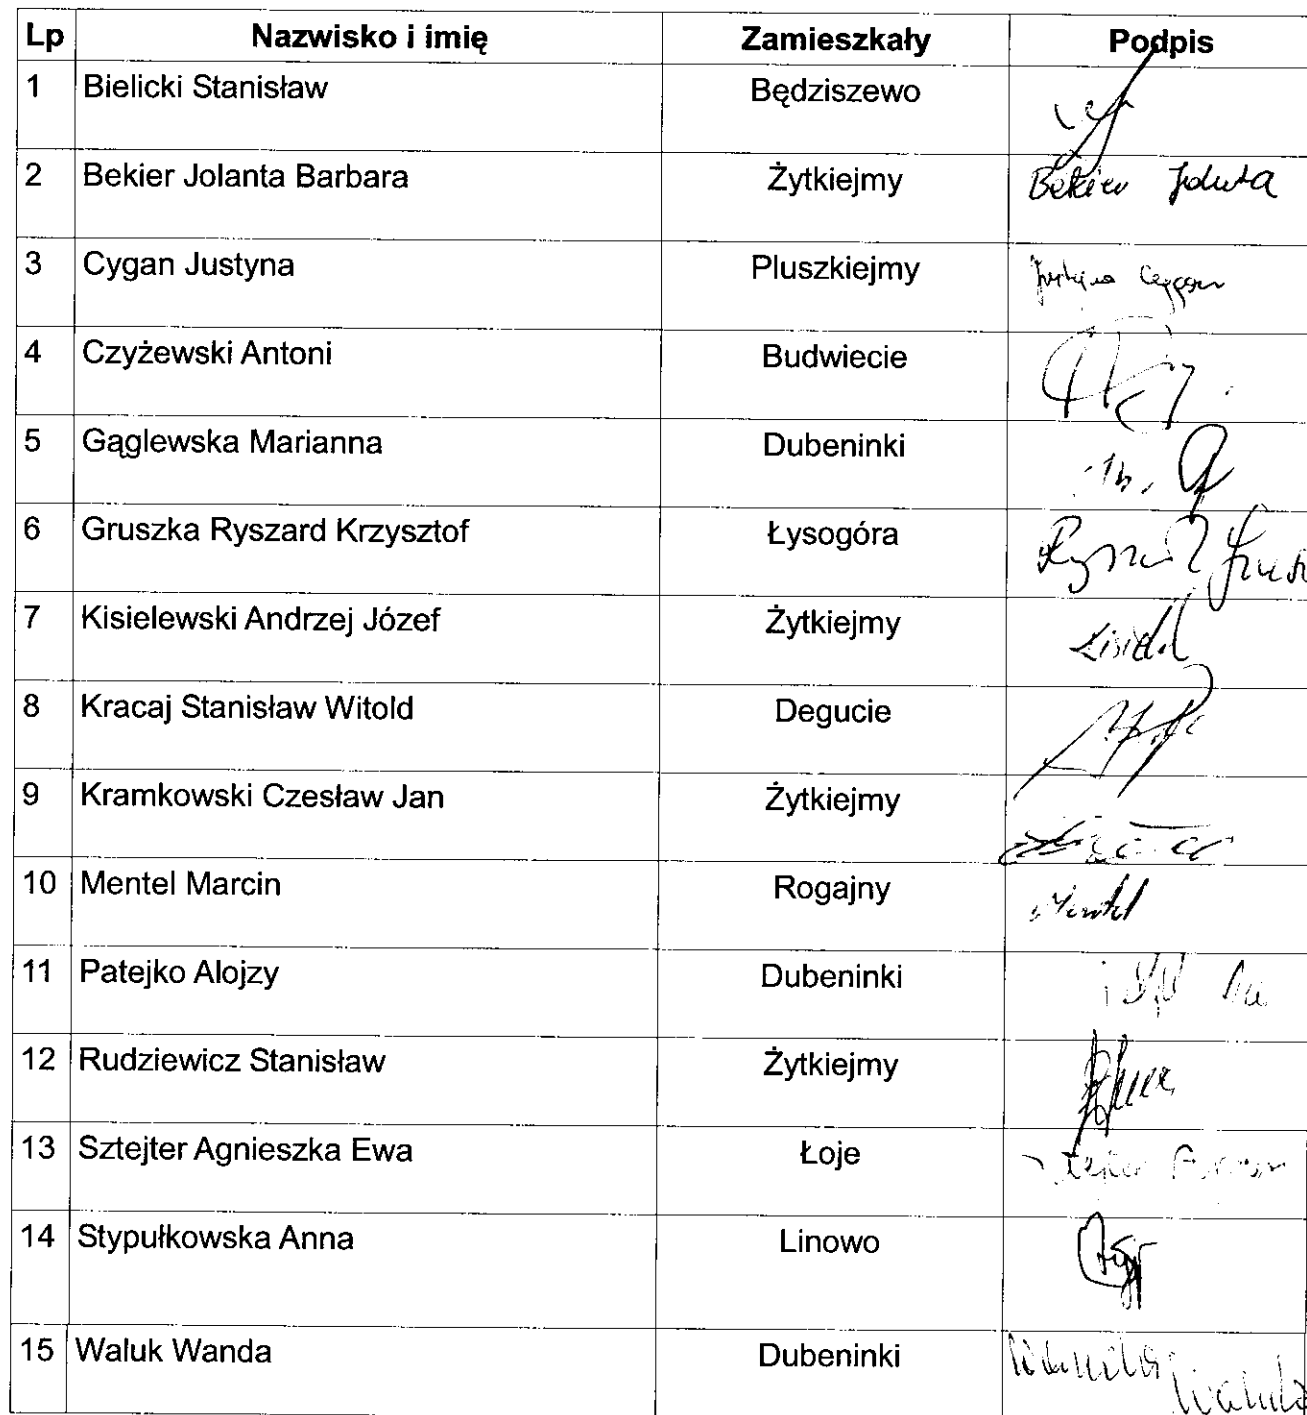 Lp Nazwisko i imię Zamieszkały Podpis
1 Bielicki Stanisław Będziszewo
2 Bekier Jolanta Barbara Żytkiejmy Bekier Jolanta
3 Cygan Justyna Pluszkiejmy Justyna Cygan
4 Czyżewski Antoni Budwiecie
5 Gąglewska Marianna Dubeninki
6 Gruszka Ryszard Krzysztof Łysogóra
7 Kisielewski Andrzej Józef Żytkiejmy
8 Kracaj Stanisław Witold Degucie
9 Kramkowski Czesław Jan Żytkiejmy
10 Mentel Marcin Rogajny Mentel
11 Patejko Alojzy Dubeninki
12 Rudziewicz Stanisław Żytkiejmy
13 Sztejter Agnieszka Ewa Łoje
14 Stypułkowska Anna Linowo
15 Waluk Wanda Dubeninki Wanda Waluk